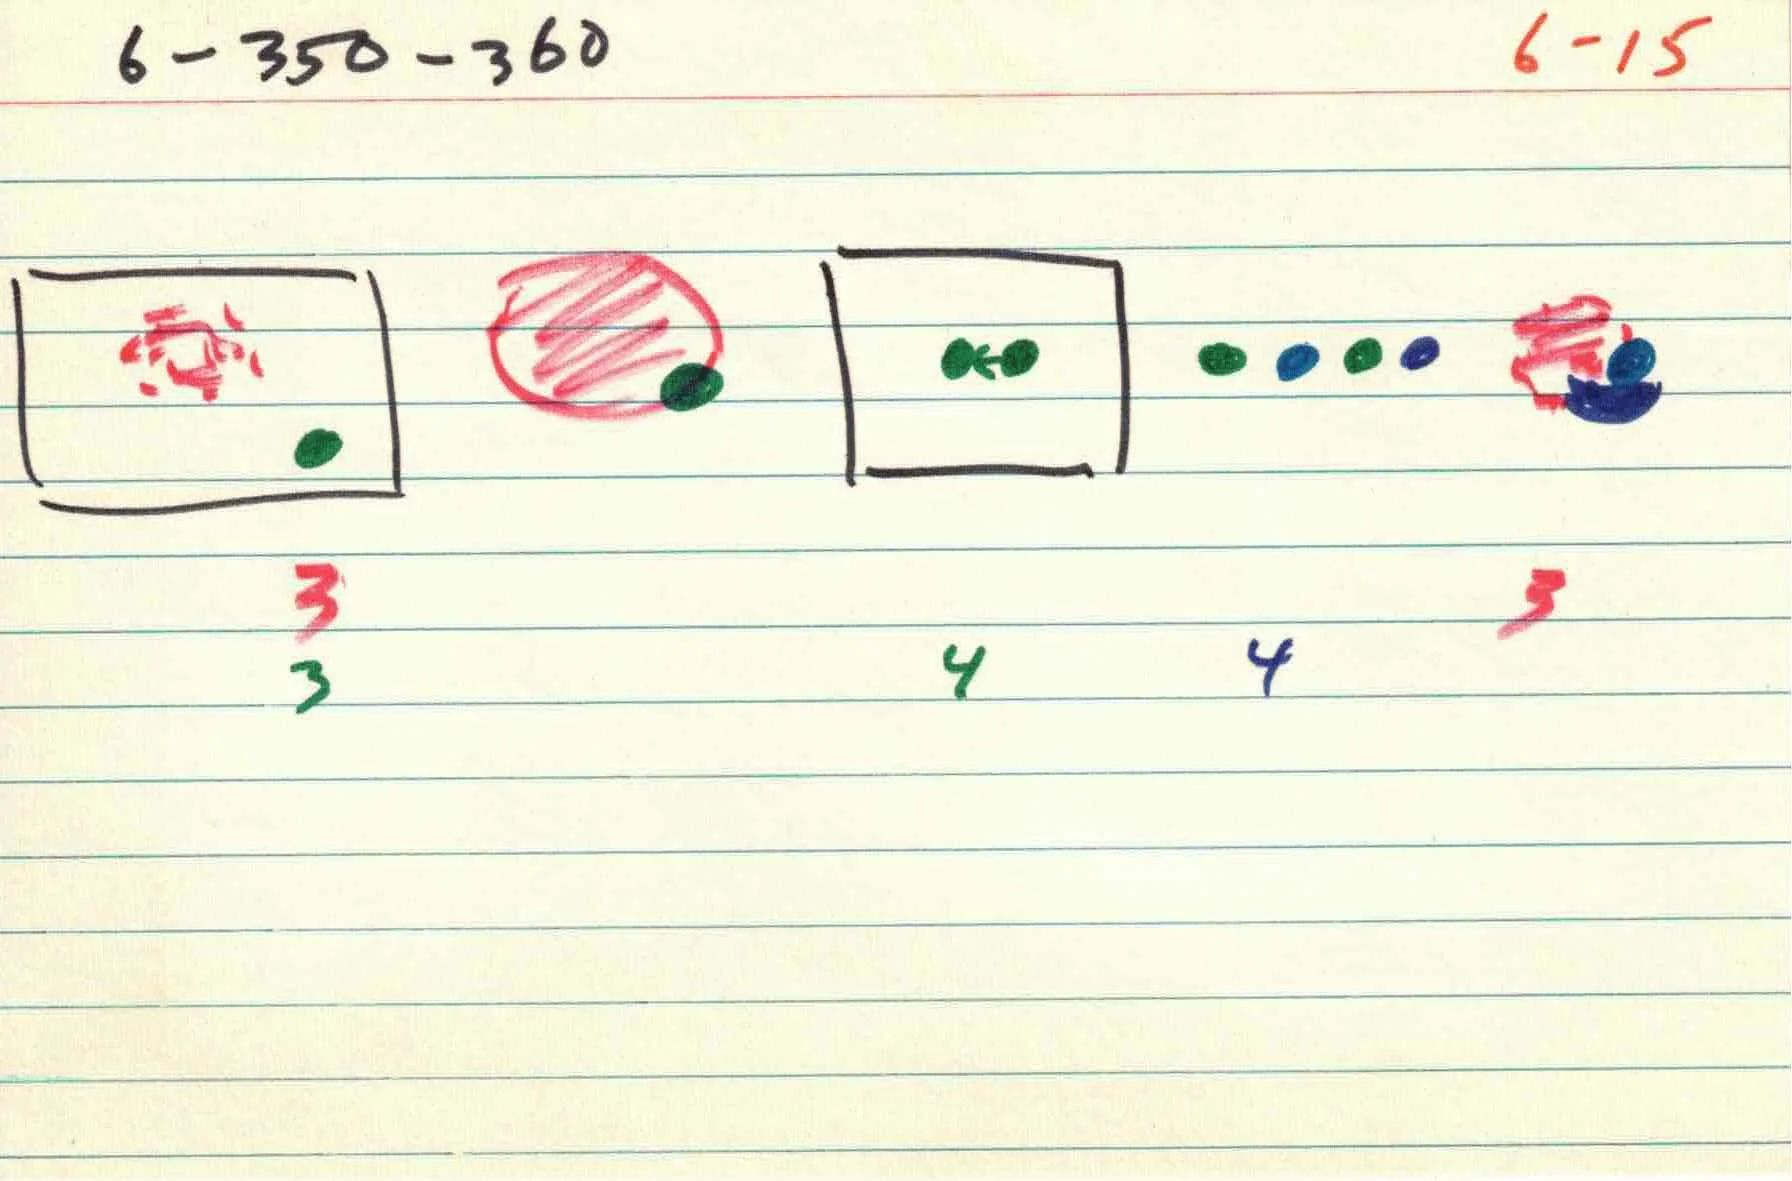 6-350-360
6-15
3 3
3 4 4